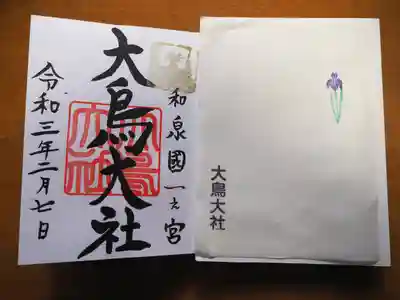 和泉國一之宮
大鳥大社
令和三年二月七日
大鳥大社